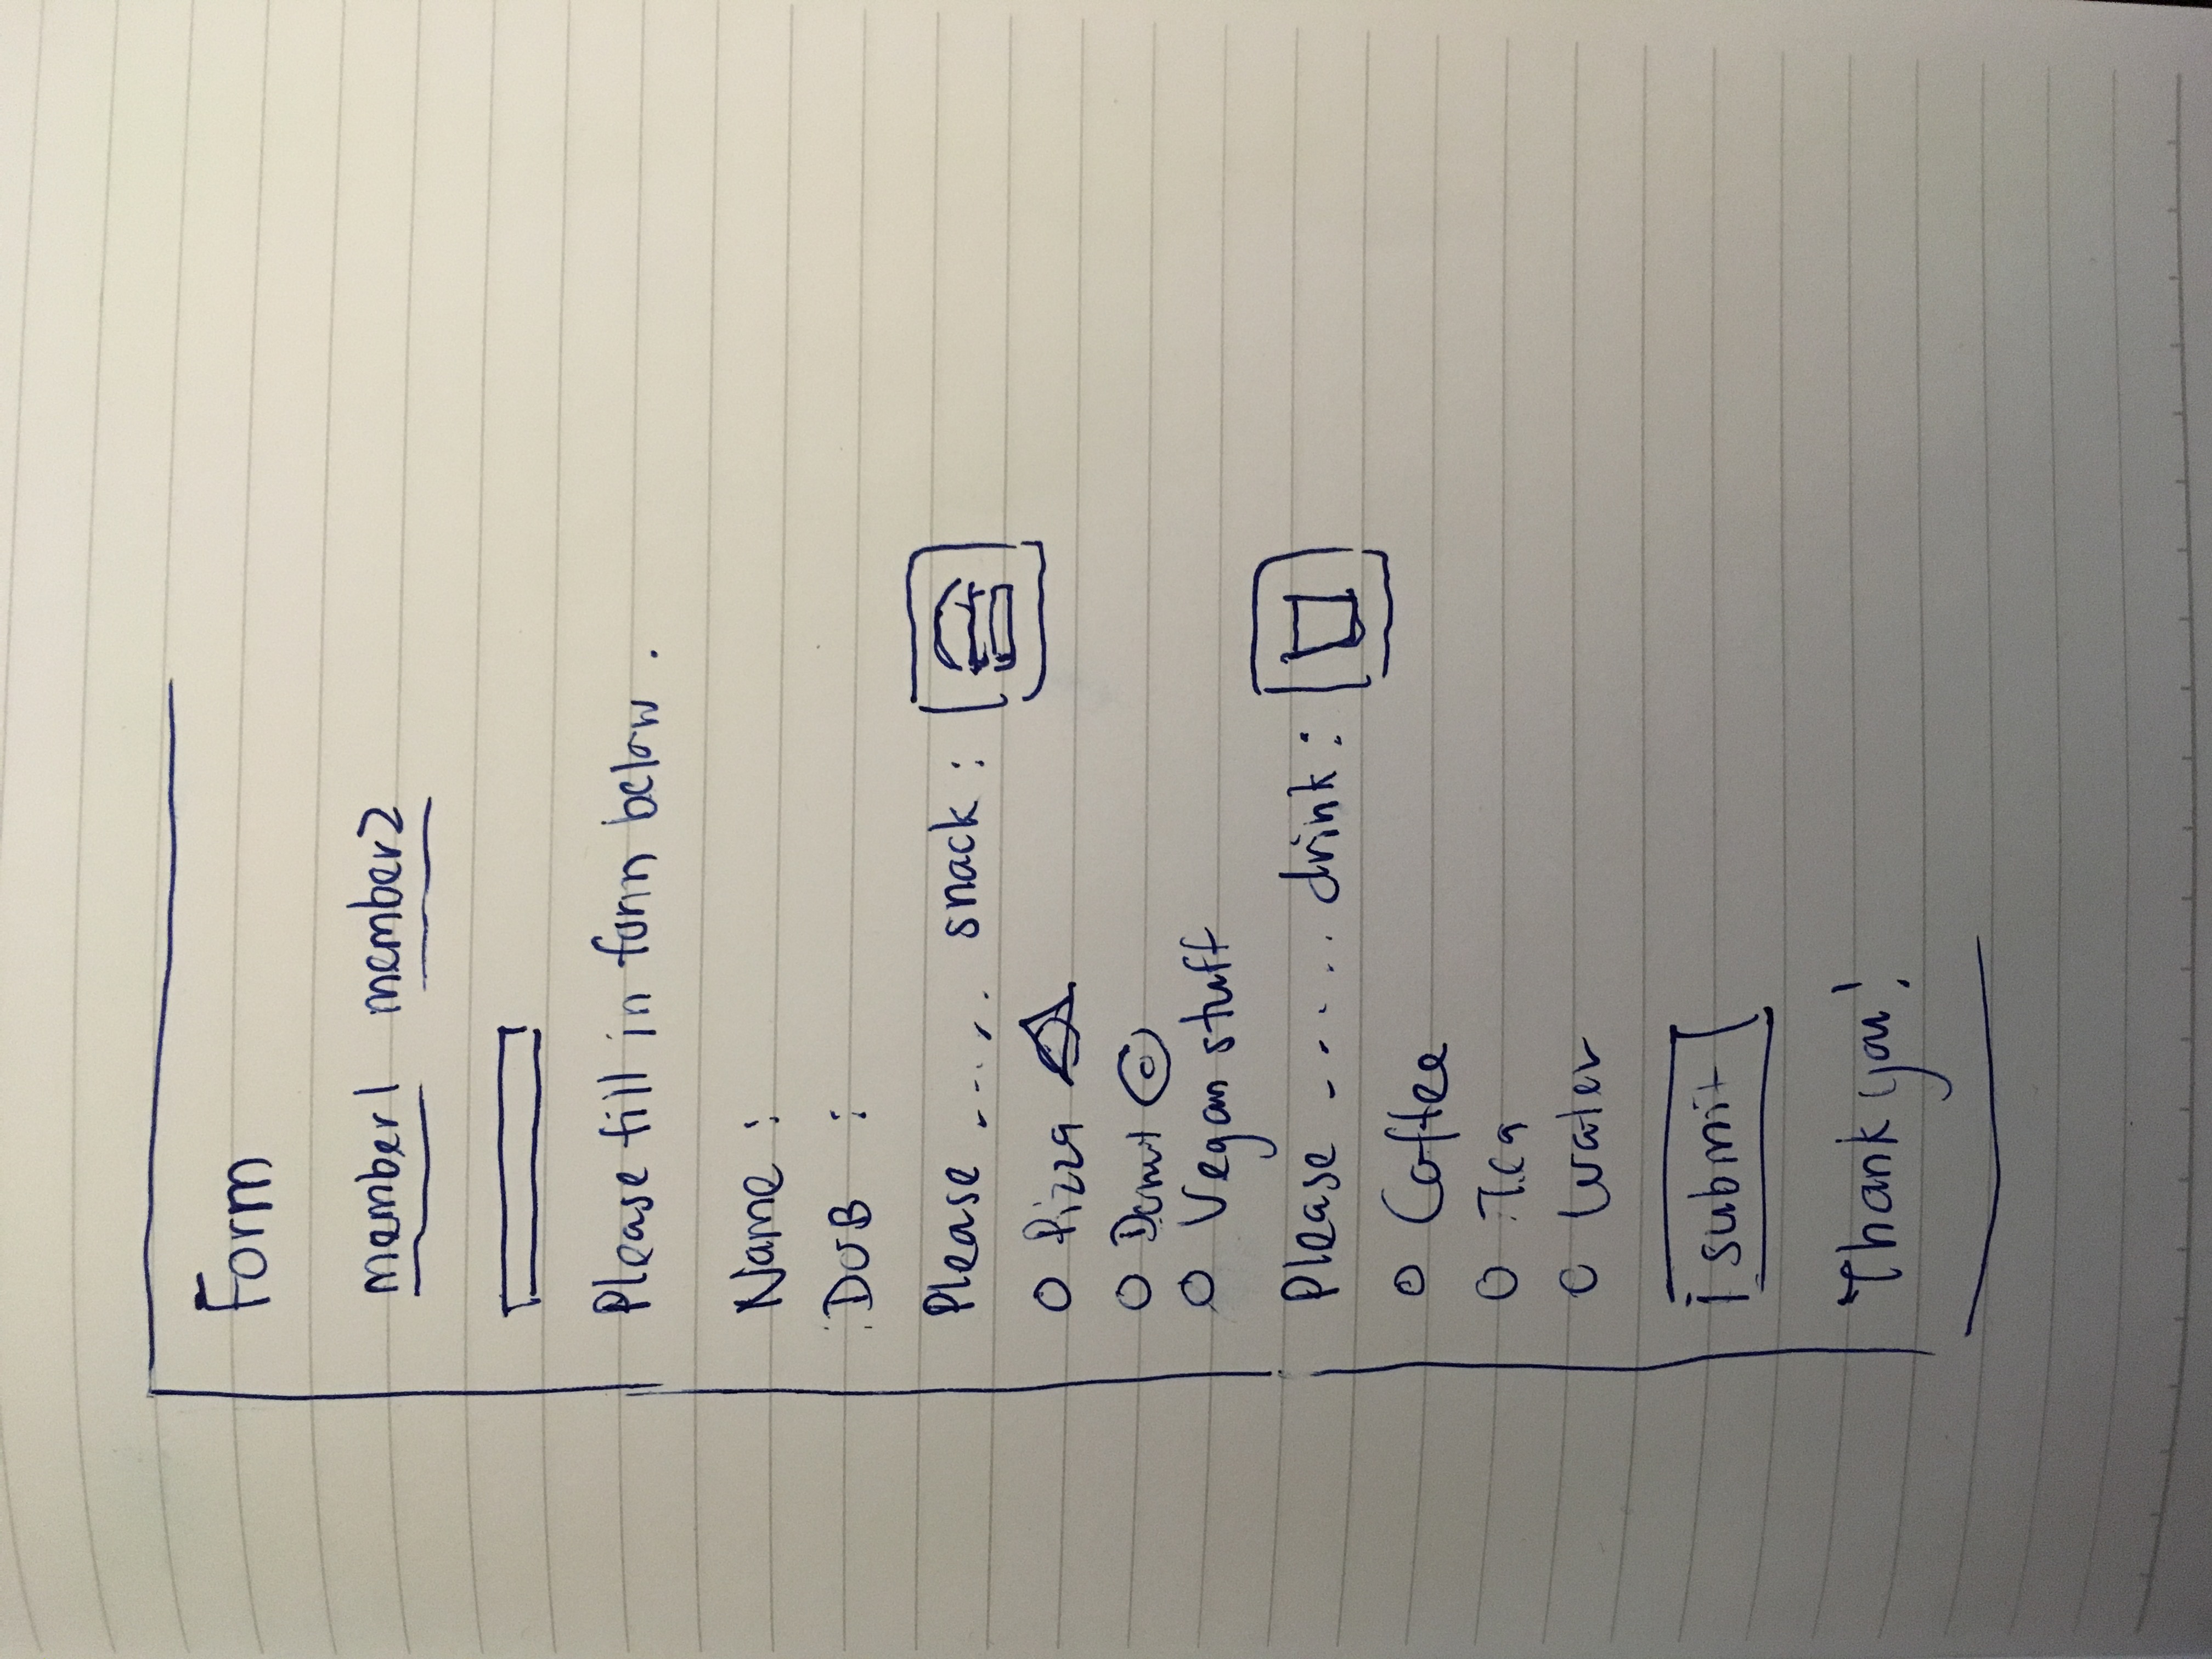 Form
member1 member2
Please fill in form below.
Name :
DOB :
Please ..... snack :
Pizza
Donut
Vegan stuff
Please ..... drink :
Coffee
Tea
Water
submit
Thank you!